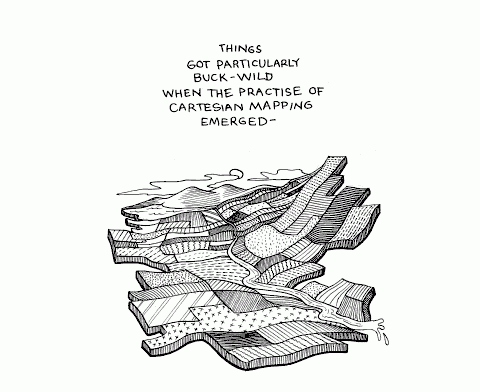 THINGS
GOT PARTICULARLY
BUCK-WILD
WHEN THE PRACTISE OF
CARTESIAN MAPPING
EMERGED-